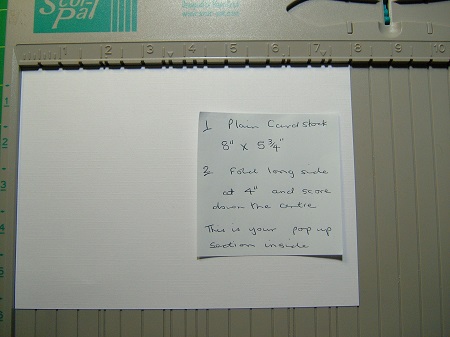 Scor-
Pal
1 2 3 4 5 6 7 8 9 10
1 Plain Cardstock
8" x 5 3/4"
2 Fold long side
at 4" and score
down the centre
This is your pop up
section inside
1
2
3
4
5
6